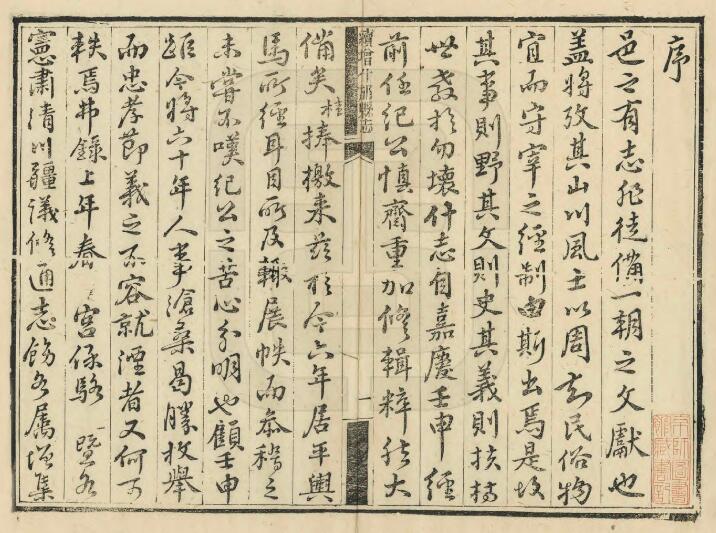 序
邑之有志非徒備一朝之文獻也
蓋將攷其山川風土以周知民俗物
宜而守宰之經制由斯出焉是故
其事則野其文則史其義則扶持
世教於勿壞什志自嘉慶壬申經
前任紀公慎齋重加修輯粹然大
續增什邡縣志
一
備矣桂捧檄来茲於今六年居平輿
馬所經耳目所及輙展帙而叅稽之
未嘗不嘆紀公之苦心分明也顧壬申
距今將六十年人事滄桑曷勝枚舉
而忠孝節義之不容就湮者又何可
軼焉弗錄上年春 宮保駱 暨各
憲肅清川疆議修通志飭各屬增集